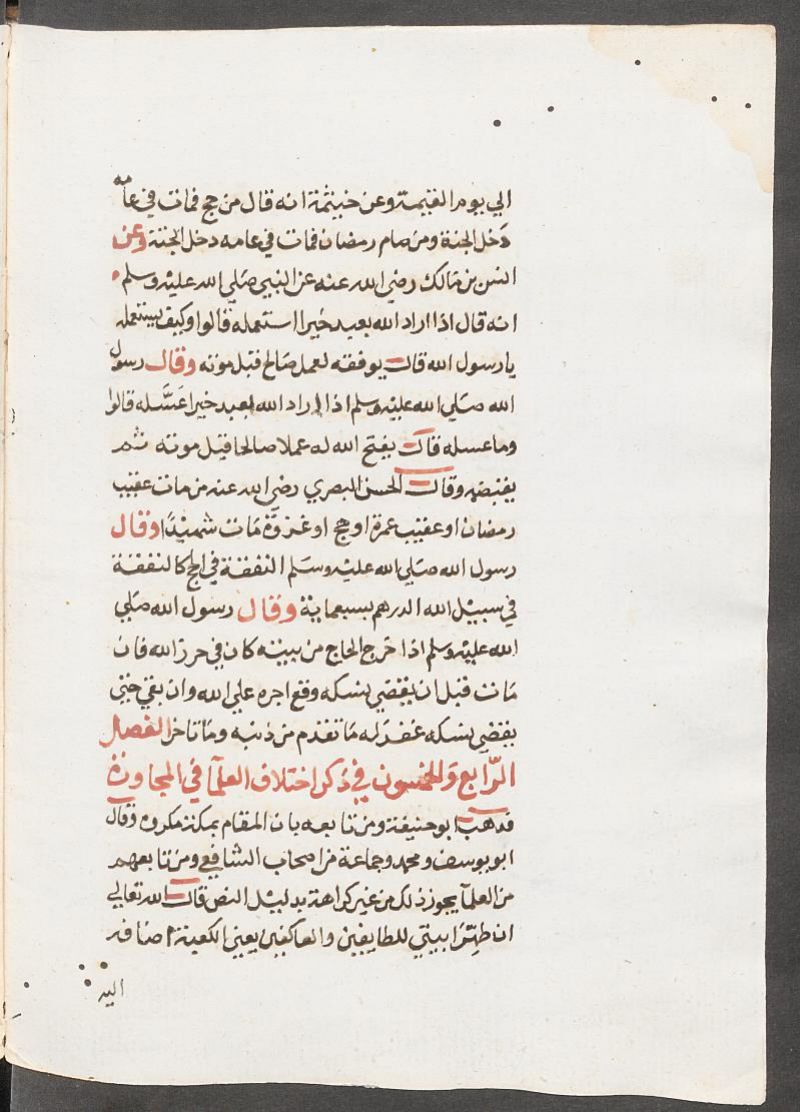 الي يوم القيمة وعن خيثمة انه قال من حج فمات في عامه
دخل الجنة ومن صام رمضان فمات في عامه دخل الجنة وعن
انس بن مالك رضي الله عنه عن النبي صلي الله عليه وسلم
انه قال اذا اراد الله بعبد خيرا استعمله قالوا وكيف يستعمله
يا رسول الله قال يوفقه لعمل صالح قبل موته وقال رسول
الله صلي الله عليه وسلم اذا اراد الله بعبد خيرا عسّله قالوا
وما عسله قال يفتح الله له عملا صالحا قبل موته ثم
يقبضه وقال الحسن البصري رضي الله عنه من مات عقيب
رمضان او عقيب عمرة او حج او غزوة مات شهيدا وقال
رسول الله صلي الله عليه وسلم النفقة في الحج كالنفقة
في سبيل الله الدرهم بسبعماية وقال رسول الله صلي
الله عليه وسلم اذا خرج الحاج من بيته كان في حرز الله فان
مات قبل ان يقضي نسكه وقع اجره علي الله وان بقي حتي
يقضي نسكه غفر له ما تقدم من ذنبه وما تاخر الفصل
الرّابع والخمسون في ذكر اختلاف العلمآ في المجاورة
فذهب ابو حنيفة ومن تابعه بان المقام بمكة مكروه وقال
ابو يوسف ومحمد وجماعة من اصحاب الشافعي ومن تابعهم
من العلمآ يجوز ذلك من غير كراهة بدليل النص قال الله تعالي
ان طهّرا بيتي للطايفين والعاكفين يعني الكعبة اضافه
اليه